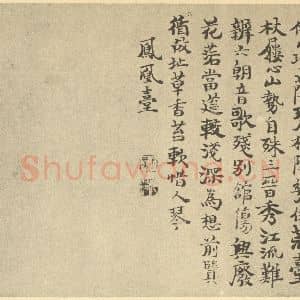 杖屨心山勢自殊三晉秀江流難
辨六朝音歌殘別館傷興廢
花落當筵較淺深為想前賢
循故址草香苔軟惜人琴
鳳凰臺
Shufawang.CN